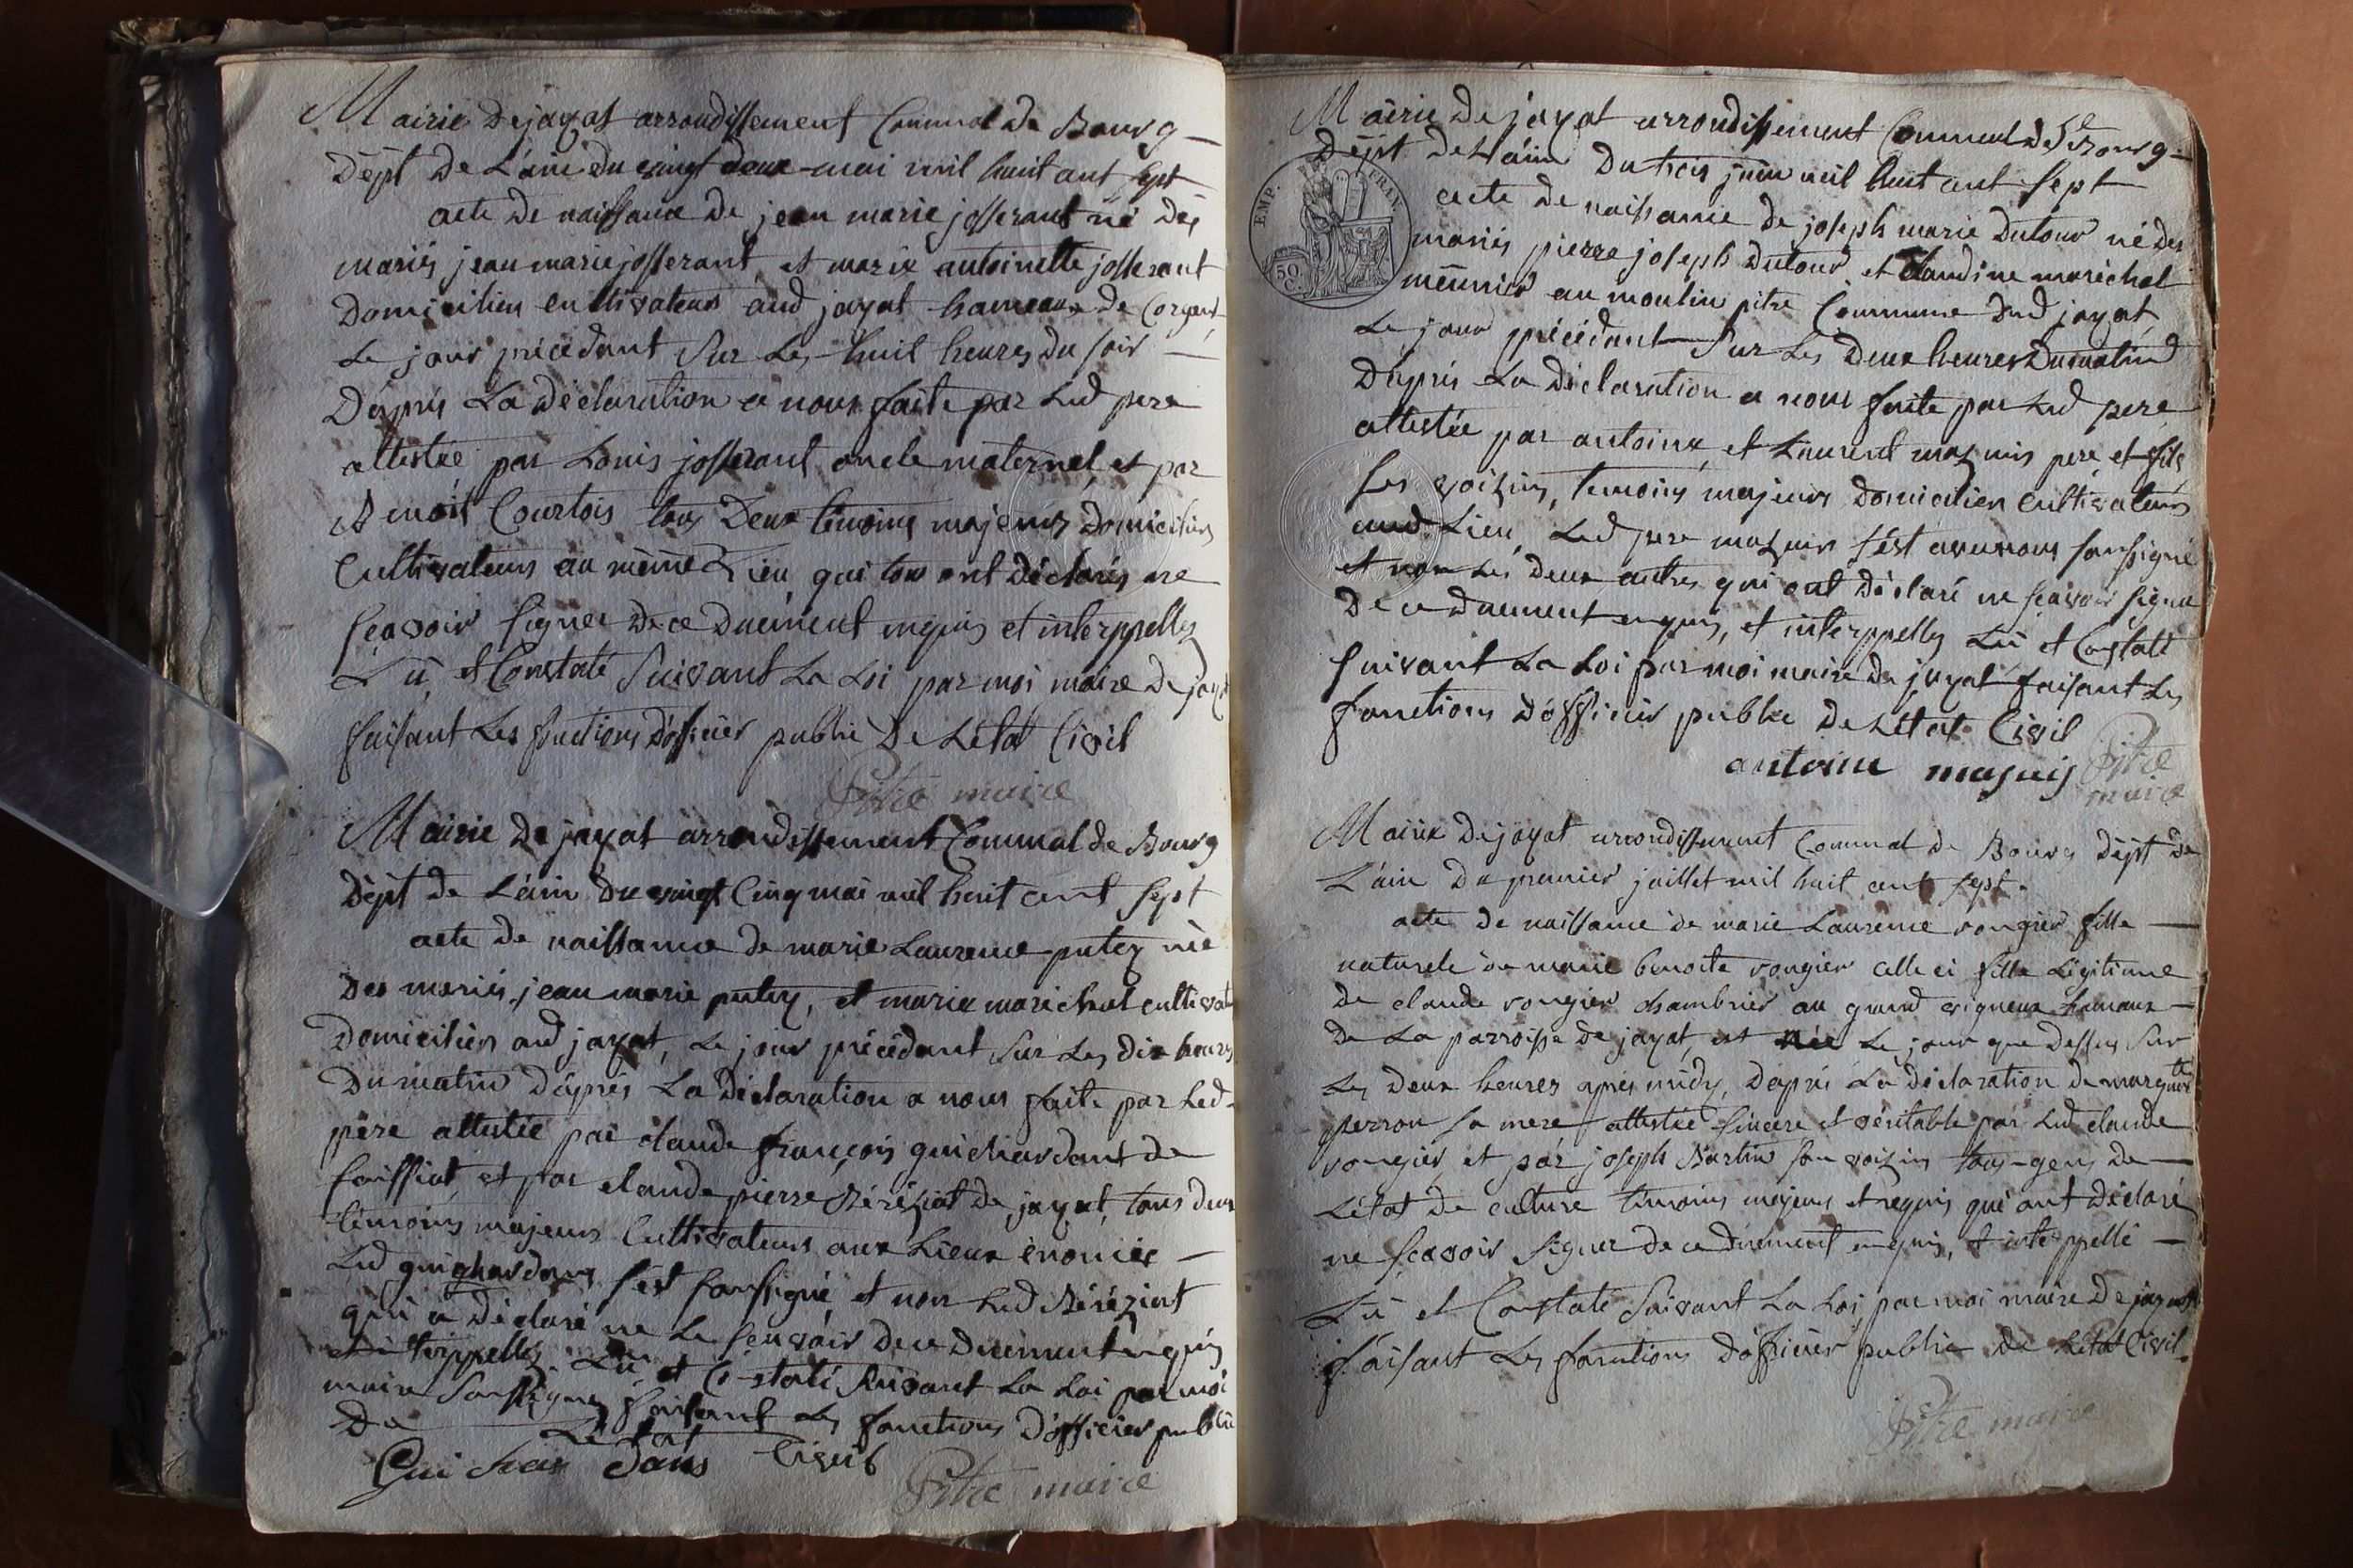 Mairie de jayat arrondissement Communal de Bourg
dépt de L'ain du vingt deux mai mil huit cent sept
acte de naissance de jean marie josserant né des
mariés jean marie josserant, et marie antoinette josserant
domiciliés cultivateurs aud jayat hameaux de Corgent
Le jour précédant Sur Les huit heures du soir
D'après La déclaration a nous faite par Led pere
attestée par Louis josserant oncle maternel, et par
Benoit Courtois tous Deux témoins majeurs domiciliés
Cultivateurs au même Lieu qui tous ont déclarés ne
sçavoir signer de ce duement enquis et interppellés
Lû, et Constaté Suivant La Loi par moi maire de jayat
faisant Les fonctions d'officier public De L'état Civil
Pitre maire
Mairie de jayat arrondissement Communal de Bourg
dépt de L'ain du vingt Cinq mai mil huit cent sept
acte de naissance de marie Laurence putey née
des mariés jean marie putey, et marie marechal cultivat
domiciliés aud jayat, Le jour précédant Sur Les dix heures
du matin D'après La déclaration a nous faite par Led
père attestée par claude françois guichardant de
foissiat et par claude pierre Béréziat de jayat, tous deux
témoins majeurs Cultivateurs aux Lieux énoncés
Led guichardans s'est soussigné et non Led Béréziat
qui a déclaré ne Le sçavoir de ce duement enquis
et interppellés. Lû et Constaté Suivant La Loi par moi
maire soussigné faisant Les fonctions d'officier public
De L'état Civil
Gui char dans
Pitre maire
Mairie de jayat arrondissement Communal de Bourg
Dépt de L'ain Du trois juin mil huit cent sept
EMP. FRAN.
50 C.
acte de naissance de joseph marie Dutour né des
mariés pierre joseph Dutour, et Claudine maréchal
meunier au moulin pitre Commune dud jayat
Le jour précédant Sur Les Deux heures Du matin
D'après La déclaration a nous faite par Led pere
attestée par antoine, et Laurent mazuis pere et fils
ses voizins, temoins majeurs domiciliés cultivateurs
aud Lieu, Led pere mazuis s'est avec nous soussigné
et non Les deux autres qui ont déclaré ne sçavoir signer
De ce duement enquis, et interppellés Lû et Constaté
suivant La Loi par moi maire de jayat faisant Les
fonctions d'officier public De L'état Civil
antoine masuis Pitre
maire
Mairie de jayat arrondissement Communal de Bourg dépt de
L'ain Du premier juillet mil huit cent sept.
acte de naissance de marie Laurence rongier fille
naturele de marie benoite rongier celle ci fille Légitime
de claude rongier chambrier au grand vigneux hamaux
De La parroisse de jayat, est née Le jour que dessus Sur
Les Deux heures après midy, D'après La déclaration de margte
perron sa mere attestée sincere et véritable par Led claude
rongier et par joseph Bartin son voizin tous gens de
L'état de culture témoins majeurs et requis qui ont déclaré
ne sçavoir signer de ce duement enquis, et interppellé
Lû et Constaté Suivant La Loi, par moi maire de jayat
faisant Les fonctions d'officier public de L'état Civil.
Pitre maire